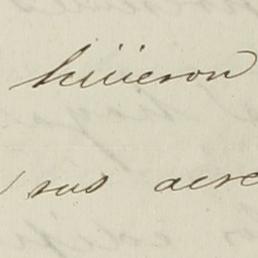 hicieron
sus acre